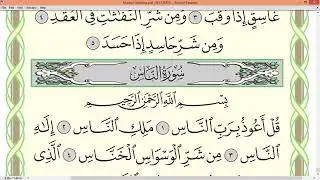 غَاسِقٍ إِذَا وَقَبَ ٣ وَمِن شَرِّ ٱلنَّفَّٰثَٰتِ فِى ٱلْعُقَدِ ٤
وَمِن شَرِّ حَاسِدٍ إِذَا حَسَدَ ٥
سُورَةُ النَّاسِ
بِسْمِ ٱللَّهِ ٱلرَّحْمَٰنِ ٱلرَّحِيمِ
قُلْ أَعُوذُ بِرَبِّ ٱلنَّاسِ ١ مَلِكِ ٱلنَّاسِ ٢ إِلَٰهِ
ٱلنَّاسِ ٣ مِن شَرِّ ٱلْوَسْوَاسِ ٱلْخَنَّاسِ ٤ ٱلَّذِى